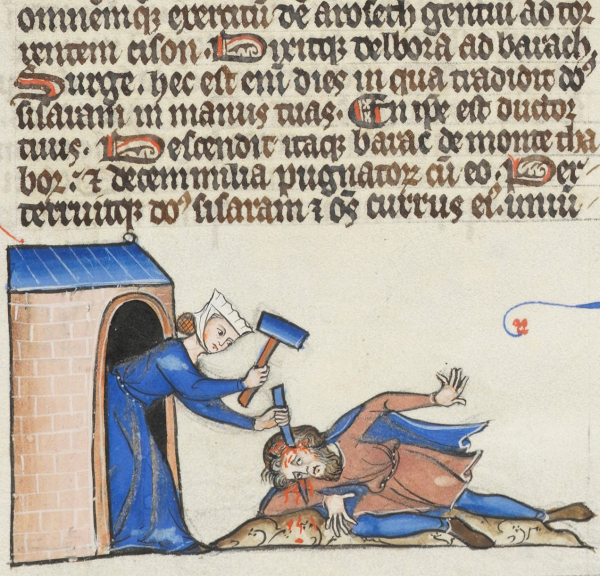 omnemqꝫ exercitū de aroseth gentiū ad tor
rentem cison. Dixitqꝫ delbora ad barach.
Surge. hec est enī dies in qua tradidit do᷒
sisaram in manus tuas. En ip̄e est ductor
tuus. Descendit itaqꝫ barac de monte tha
bor. ⁊ decem milia pugnatoꝝ cū eo. Per-
terruitqꝫ do᷒ sisaram ⁊ oēs currus ei᷒. uniū